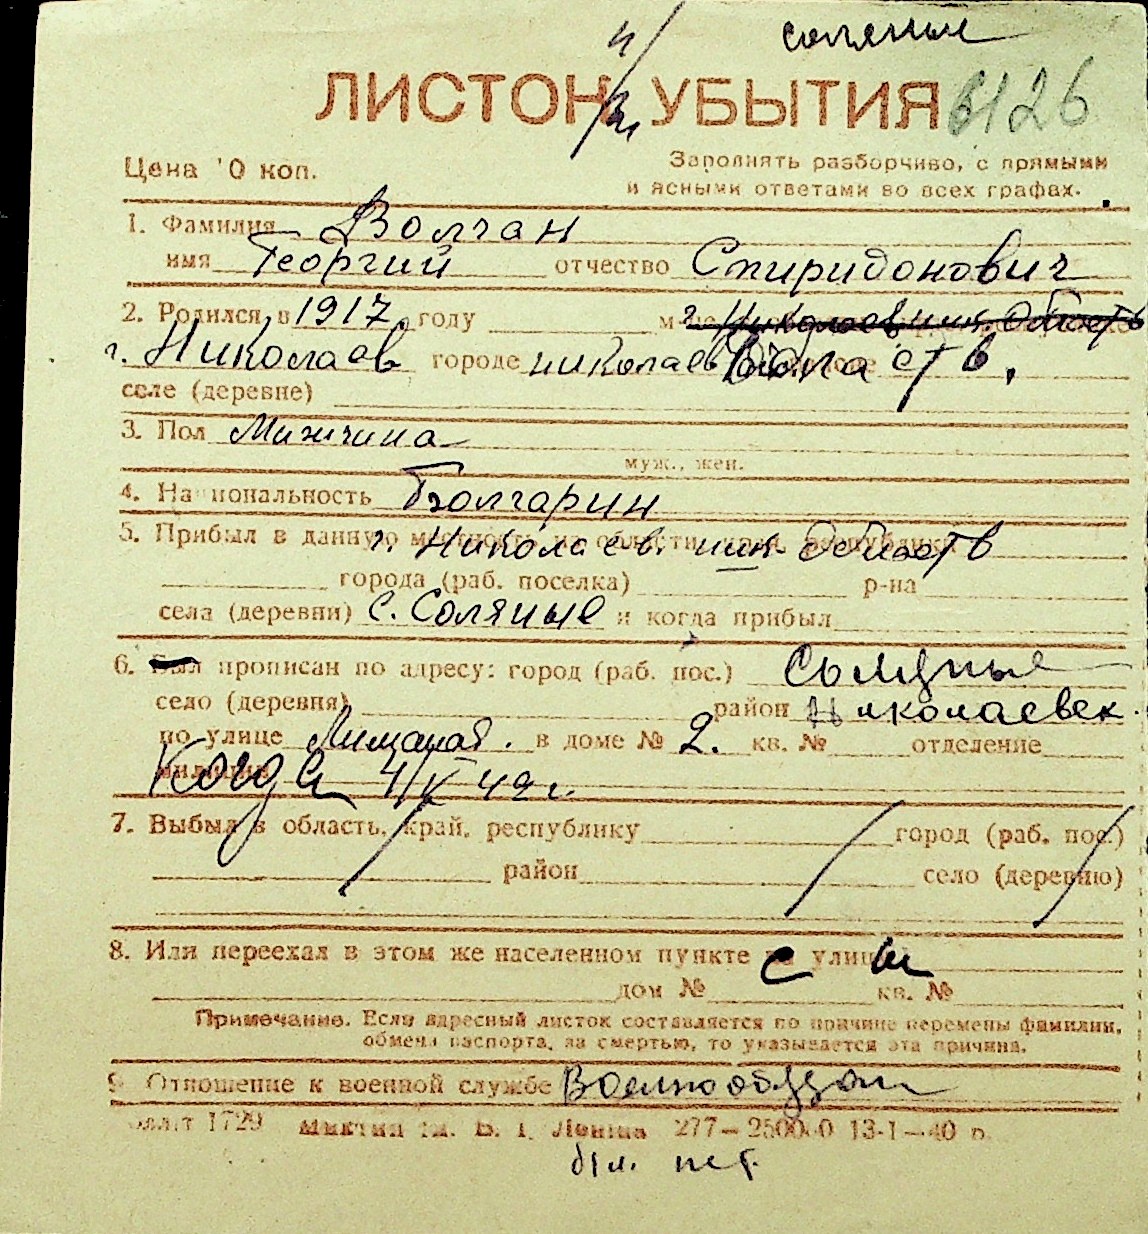 соленые
ЛИСТОК УБЫТИЯ 6126
Цена 10 коп. Заполнять разборчиво, с прямыми
и ясными ответами во всех графах.
1. Фамилия Волчан
имя Георгий отчество Спиридонович
2. Родился в 1917 году г. Николаев область
г. Николаев городе николаев область,
селе (деревне)
3. Пол Мижчина
муж., жен.
4. Национальность Болгарин
5. Прибыл в данную местность из области, края, республики г. Николаев. область
города (раб. поселка) р-на
села (деревни) с. Соляные и когда прибыл
6. Был прописан по адресу: город (раб. пос.)
село (деревня) район Николаевск.
по улице в доме № 2. кв. № отделение
милиции Когда 4/V 42 г.
7. Выбыл в область, край, республику город (раб. пос.)
район село (деревню)
8. Или переехал в этом же населенном пункте на улицу
дом № кв. №
Примечание. Если адресный листок составляется по причине перемены фамилии,
обмена паспорта, за смертью, то указывается эта причина.
9. Отношение к военной службе
1729 В. І. Леніна 277— 13-1—40 р.